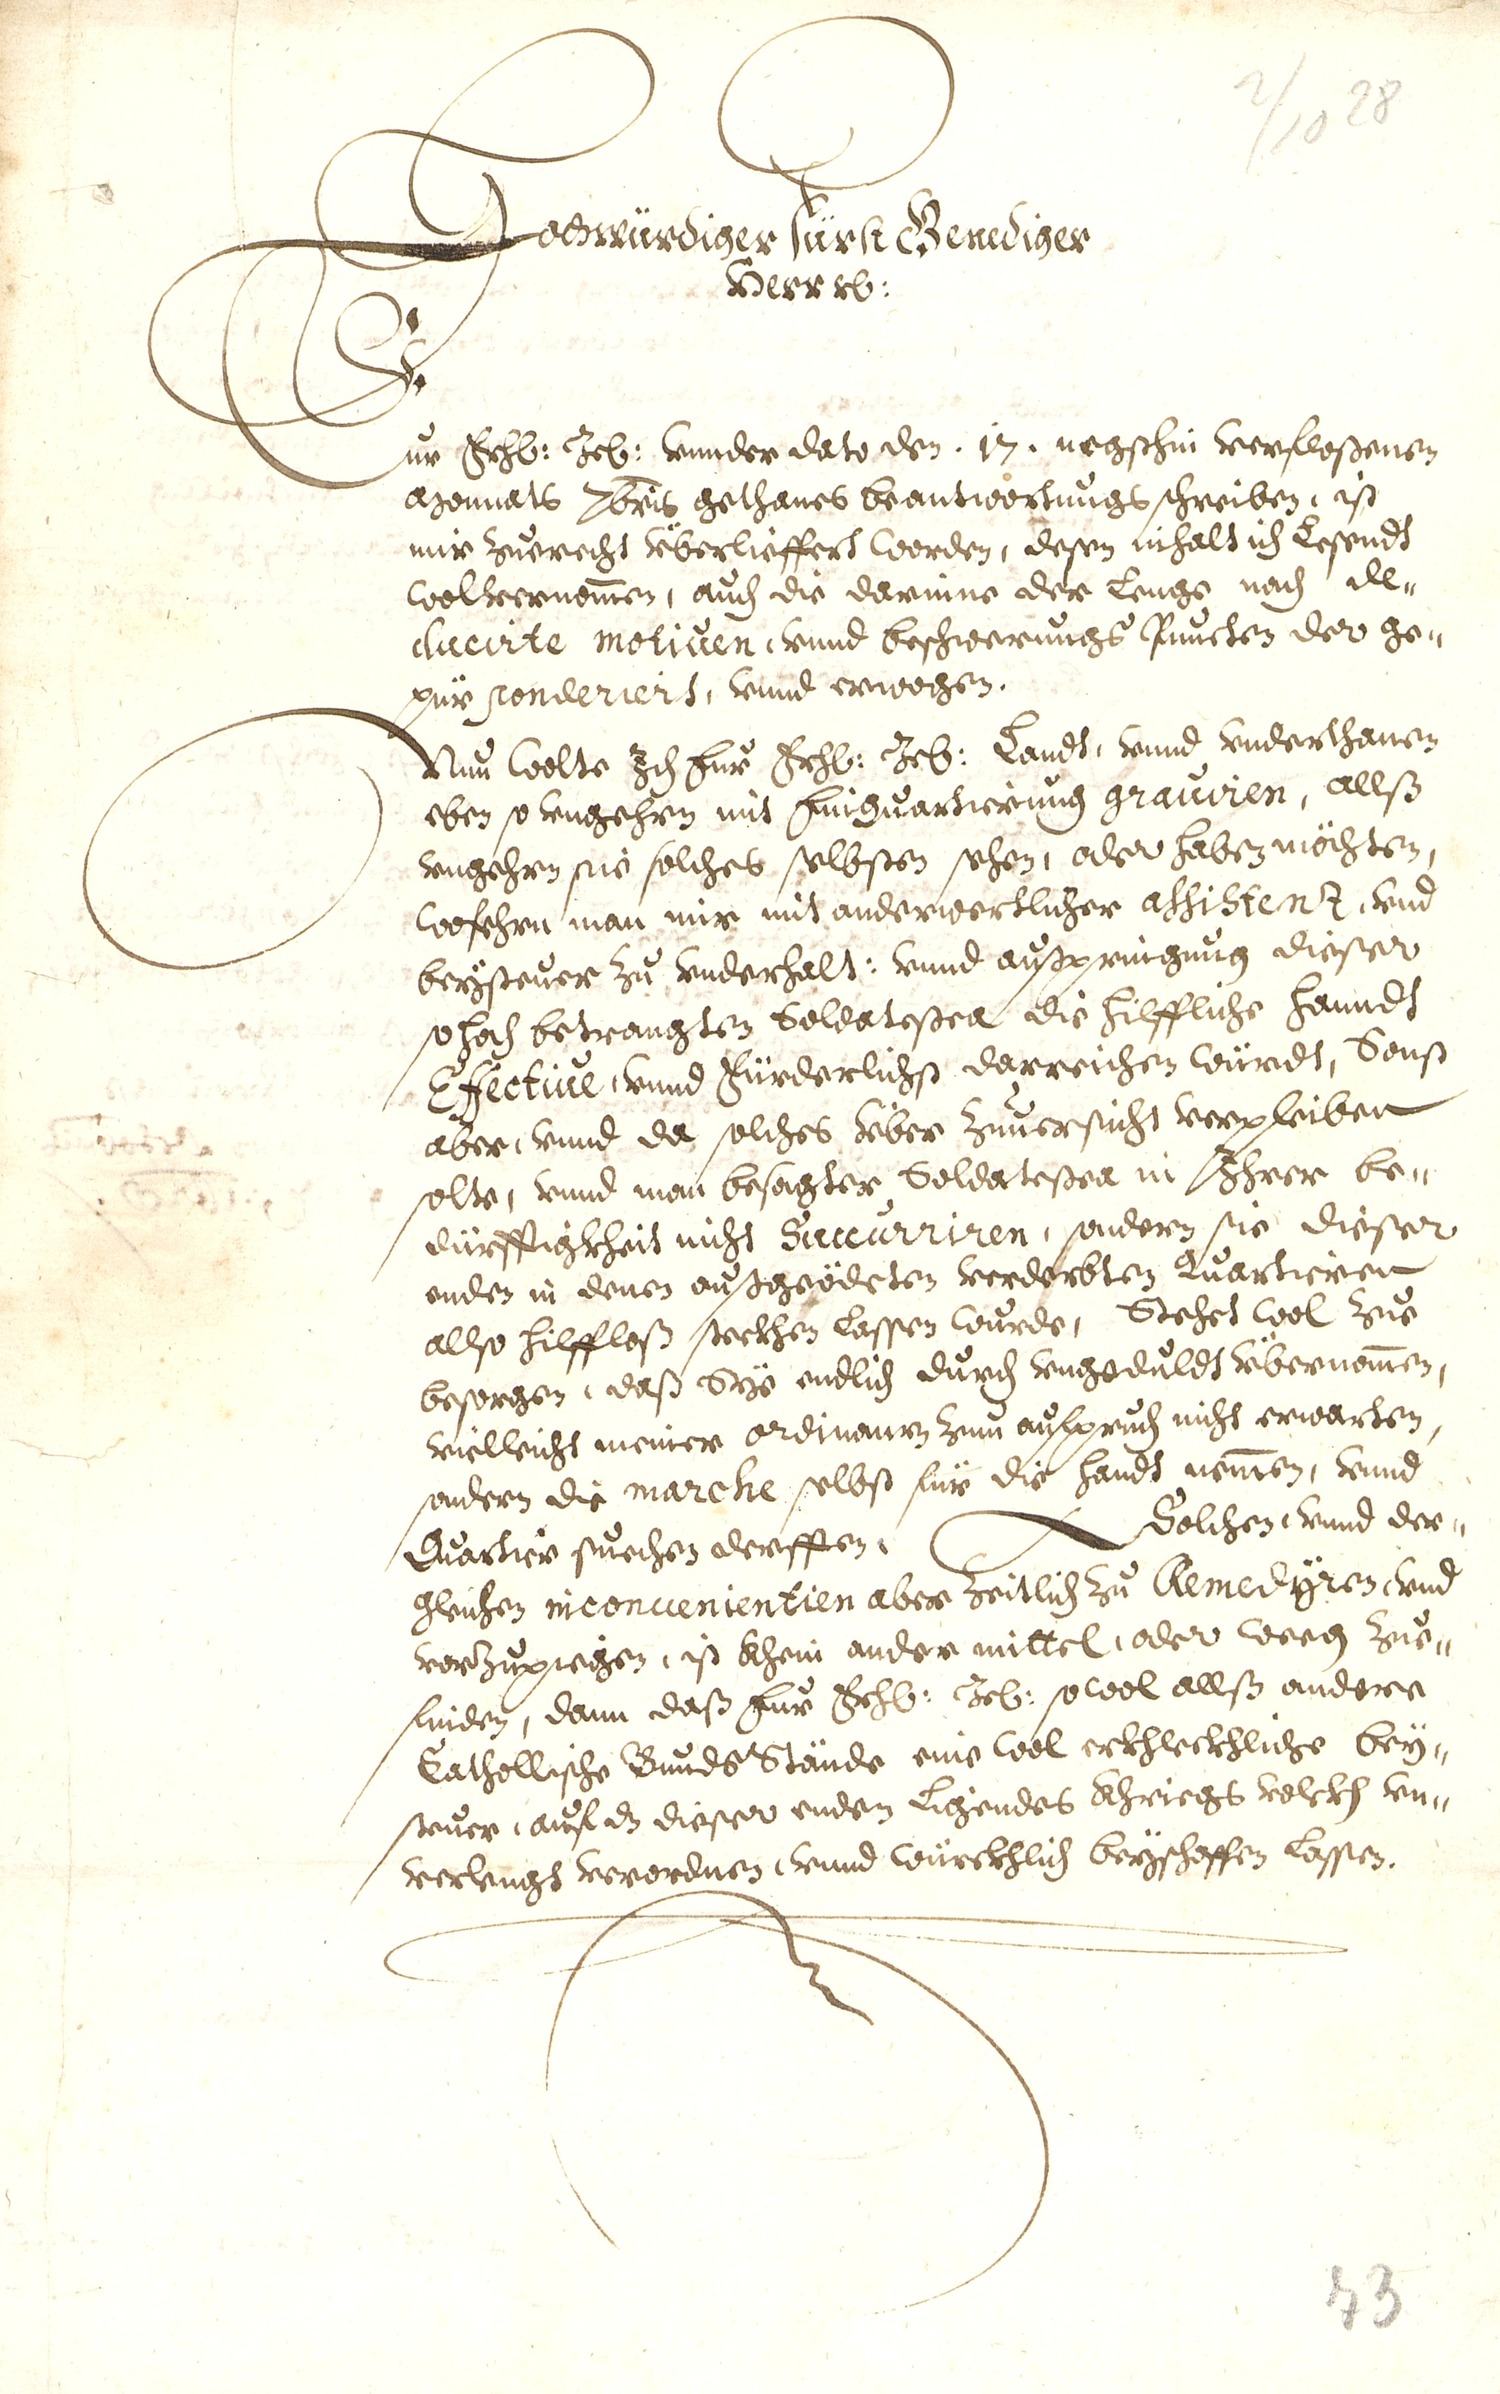 2/10 28
Hochwürdiger Fürst Genediger
Herr etc:
Eur Frstl: Gn: vnnder dato den . 17 . negsthin verfloßenen
Monnats 7bris gethanes beantwortungs schreiben, ist
mir zuerecht überlieffert worden, deßen inhalt ich Lesendt
wol vernom̄en, auch die darinne der Lenge nach de„
ducirte motiuen, vnnd beschwerungs Puncten der ge„
pür ponderiert, vnnd erwogen.
Nun wolte Ich Eur Frstl: Gn: Landt, vnnd vnderthanen
eben so vngehrn mit Einquartierung grauiren, allß
vngehrn sie solches selbsten sehen, oder haben möchten,
wofehrn man mir mit anderwertlicher assistenz, vnd
beÿsteuer zu vnderhalt: vnnd außpringung dieser
so hoch betrangten Soldatesca die hilffliche hanndt
Effectiue, vnnd Fürderlichst darreichen würdt, Sonst
aber, vnnd da solches über zuuersicht verpleiben
solte, vnnd man besagter Soldatesca in Ihrer be„
dürfftigkheit nicht Succurriren, sondern sie dieser
enden in denen außgeödeten verderbten Quartieren
allso hilffloß steckhen lassen wurde, Stehet wol zue
besorgen, daß Sÿe endlich durch vngedult übernom̄en,
villeicht meiner ordinannz zum aufpruch nicht erwarten,
sondern die marche selbst für die handt nem̄en, vnnd
Quartier suechen derfften. Solchen, vnnd der„
gleichen inconuenientien aber zeitlich zu Remedÿren, vnd
vorzupiegen, ist khein ander mittel, oder weeg zue„
finden, dann daß Eur Frstl: Gn: so wol allß andere
Catholische Bundts Stände eine wol erkhleckhliche beÿ„
steuer, auf dz dieser enden Ligendes khriegs volckh vn„
verlengt verordnen, vnnd würckhlich beÿschaffen lassen.
43